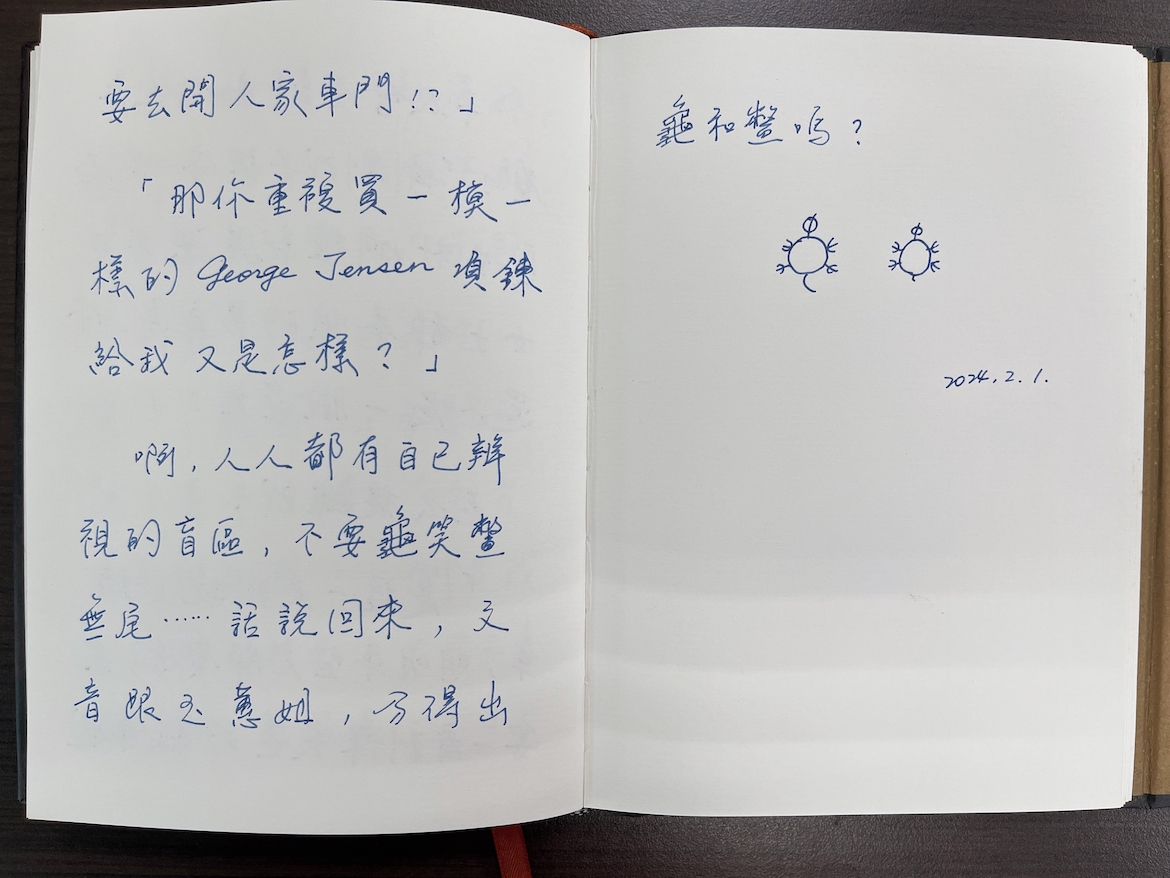 要去開人家車門!?」
「那你重複買一模一
樣的 George Jensen 項鍊
給我又是怎樣?」
啊,人人都有自己辨
視的盲區,不要龜笑鱉
無尾……話說回來,文
音跟玉蕙姐,分得出
龜和鱉嗎?
2024.2.1.